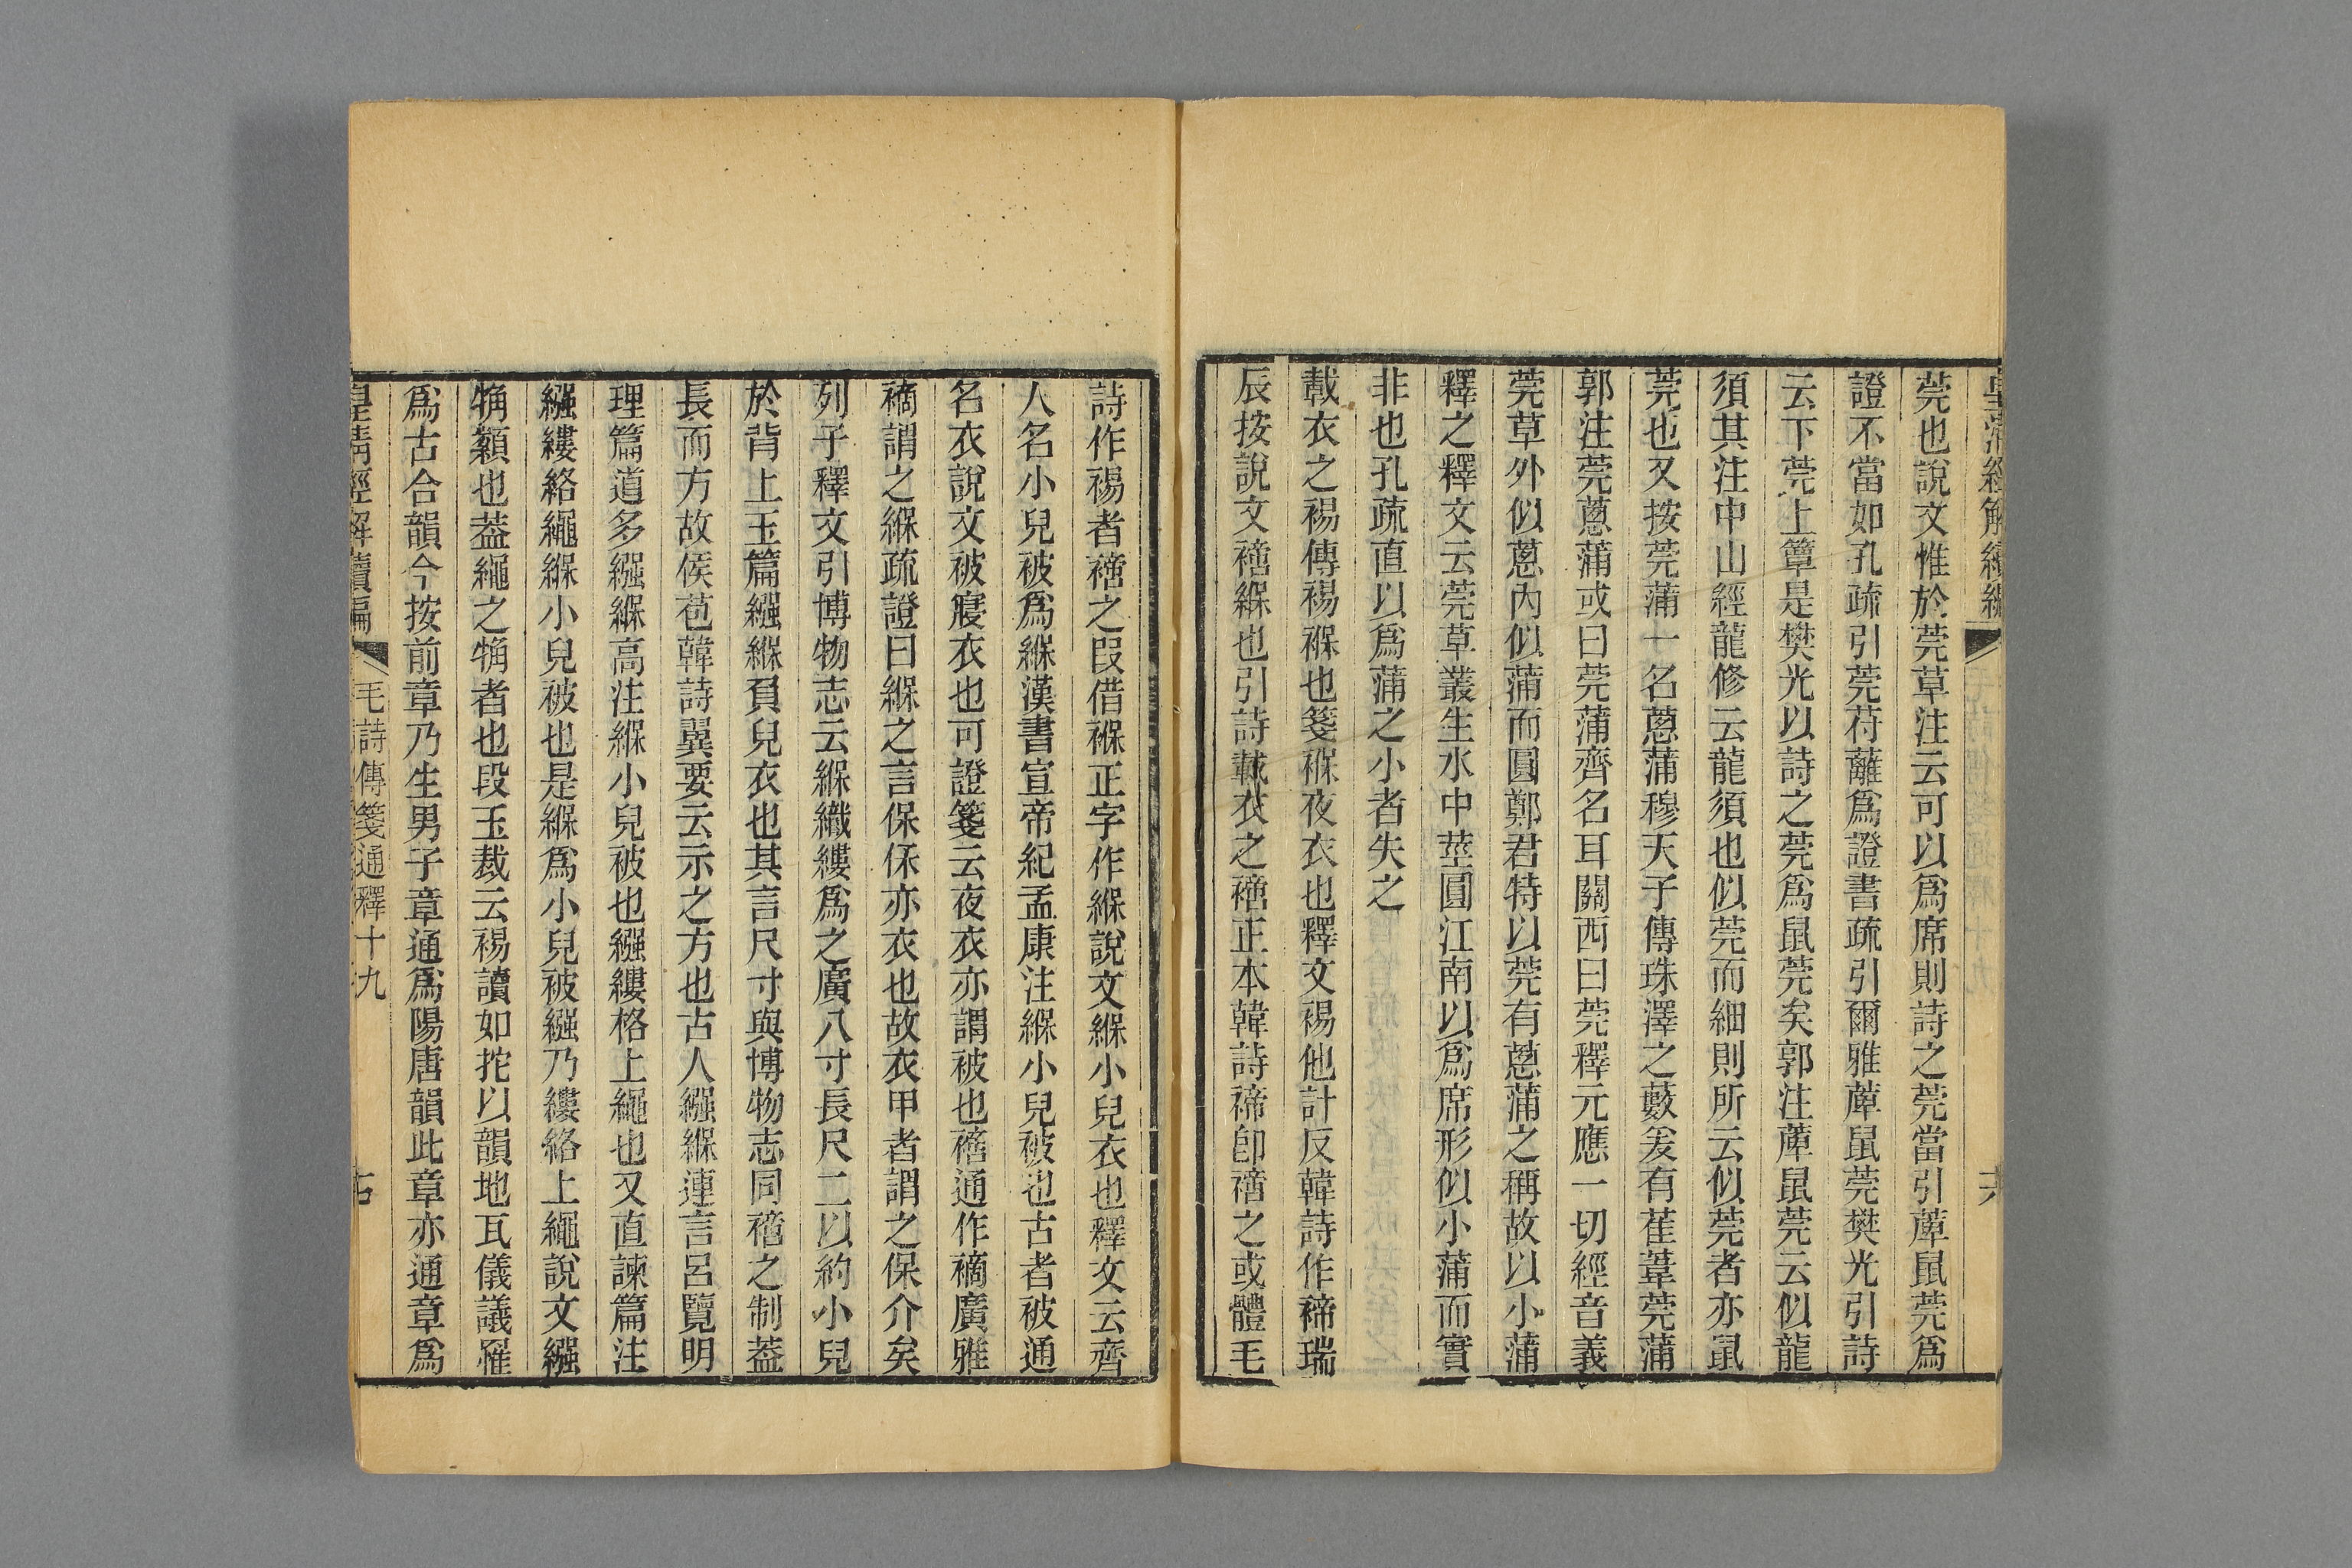 皇清經解續編
莞也說文惟於莞草注云可以爲席則詩之莞當引藨鼠莞爲
證不當如孔疏引莞苻蘺爲證書疏引爾雅藨鼠莞樊光引詩
云下莞上簟是樊光以詩之莞爲鼠莞矣郭注藨鼠莞云似龍
須其注中山經龍修云龍須也似莞而細則所云似莞者亦鼠
莞也又按莞蒲一名蔥蒲穆天子傳珠澤之藪爰有萑葦莞蒲
郭注莞蔥蒲或曰莞蒲齊名耳關西曰莞釋元應一切經音義
莞草外似蔥內似蒲而圓鄭君特以莞有蔥蒲之稱故以小蒲
釋之釋文云莞草叢生水中莖圓江南以爲席形似小蒲而實
非也孔疏直以爲蒲之小者失之
載衣之裼傳裼褓也箋褓夜衣也釋文裼他計反韓詩作褅瑞
辰按說文䙛緥也引詩載衣之䙛正本韓詩褅卽䙛之或體毛
詩作裼者䙛之叚借褓正字作緥說文緥小兒衣也釋文云齊
人名小兒被爲緥漢書宣帝紀孟康注緥小兒被也古者被通
名衣說文被寢衣也可證箋云夜衣亦謂被也䙛通作褅廣雅
褅謂之緥疏證曰緥之言保保亦衣也故衣甲者謂之保介矣
列子釋文引博物志云緥織縷爲之廣八寸長尺二以約小兒
於背上玉篇繈緥負兒衣也其言尺寸與博物志同䙛之制蓋
長而方故侯苞韓詩翼要云示之方也古人繈緥連言呂覽明
理篇道多繈緥高注緥小兒被也繈縷格上繩也又直諫篇注
繈縷絡繩緥小兒被也是緥爲小兒被繈乃縷絡上繩說文繈
觕纇也蓋繩之觕者也段玉裁云裼讀如拕以韻地瓦儀議罹
爲古合韻今按前章乃生男子章通爲陽唐韻此章亦通章爲
皇清經解續編 毛詩傳箋通釋十九